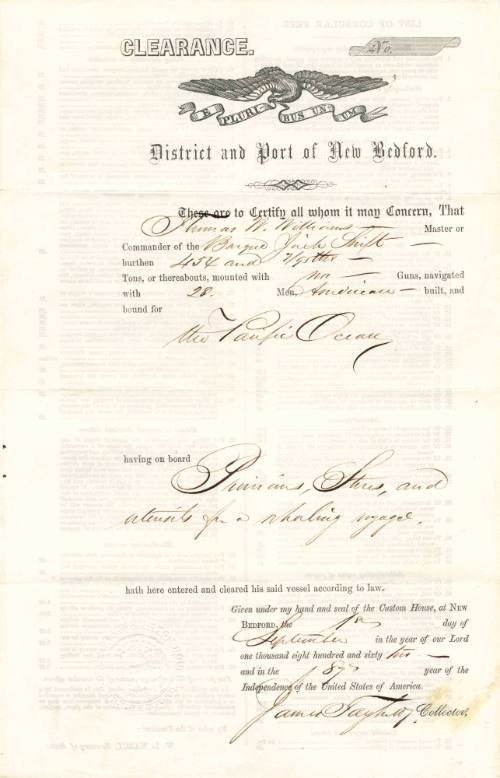 CLEARANCE.
No.
E PLURIBUS UNUM
District and Port of New Bedford.
These are to Certify all whom it may Concern, That
Thomas W. Williams — Master or
Commander of the Barque Jireh Swift —
burthen 454 and 7/95ths —
Tons, or thereabouts, mounted with no — Guns, navigated
with 28. Men. American — built, and
bound for
the Pacific Ocean
having on board
Provisions, Stores, and
utensils for a whaling voyage.
hath here entered and cleared his said vessel according to law.
Given under my hand and seal of the Custom House, at NEW
BEDFORD, the day of
September in the year of our Lord
one thousand eight hundred and sixty two —
and in the 87 year of the
Independence of the United States of America.
James Taylor Collector,